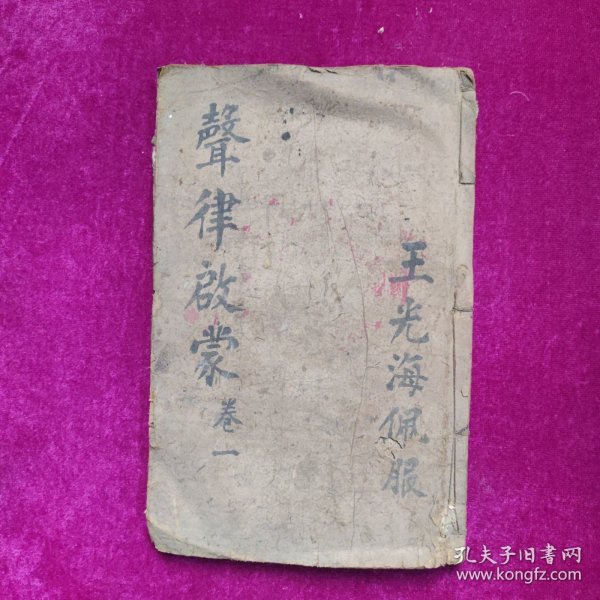 聲律啟蒙 卷一
王光海佩服
孔夫子旧書网
www.kongfz.com